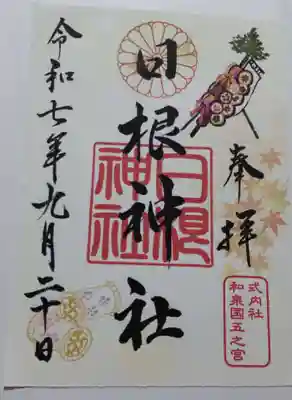 奉拝
式内社
和泉国五之宮
日根神社
日根神社
令和七年九月二十日